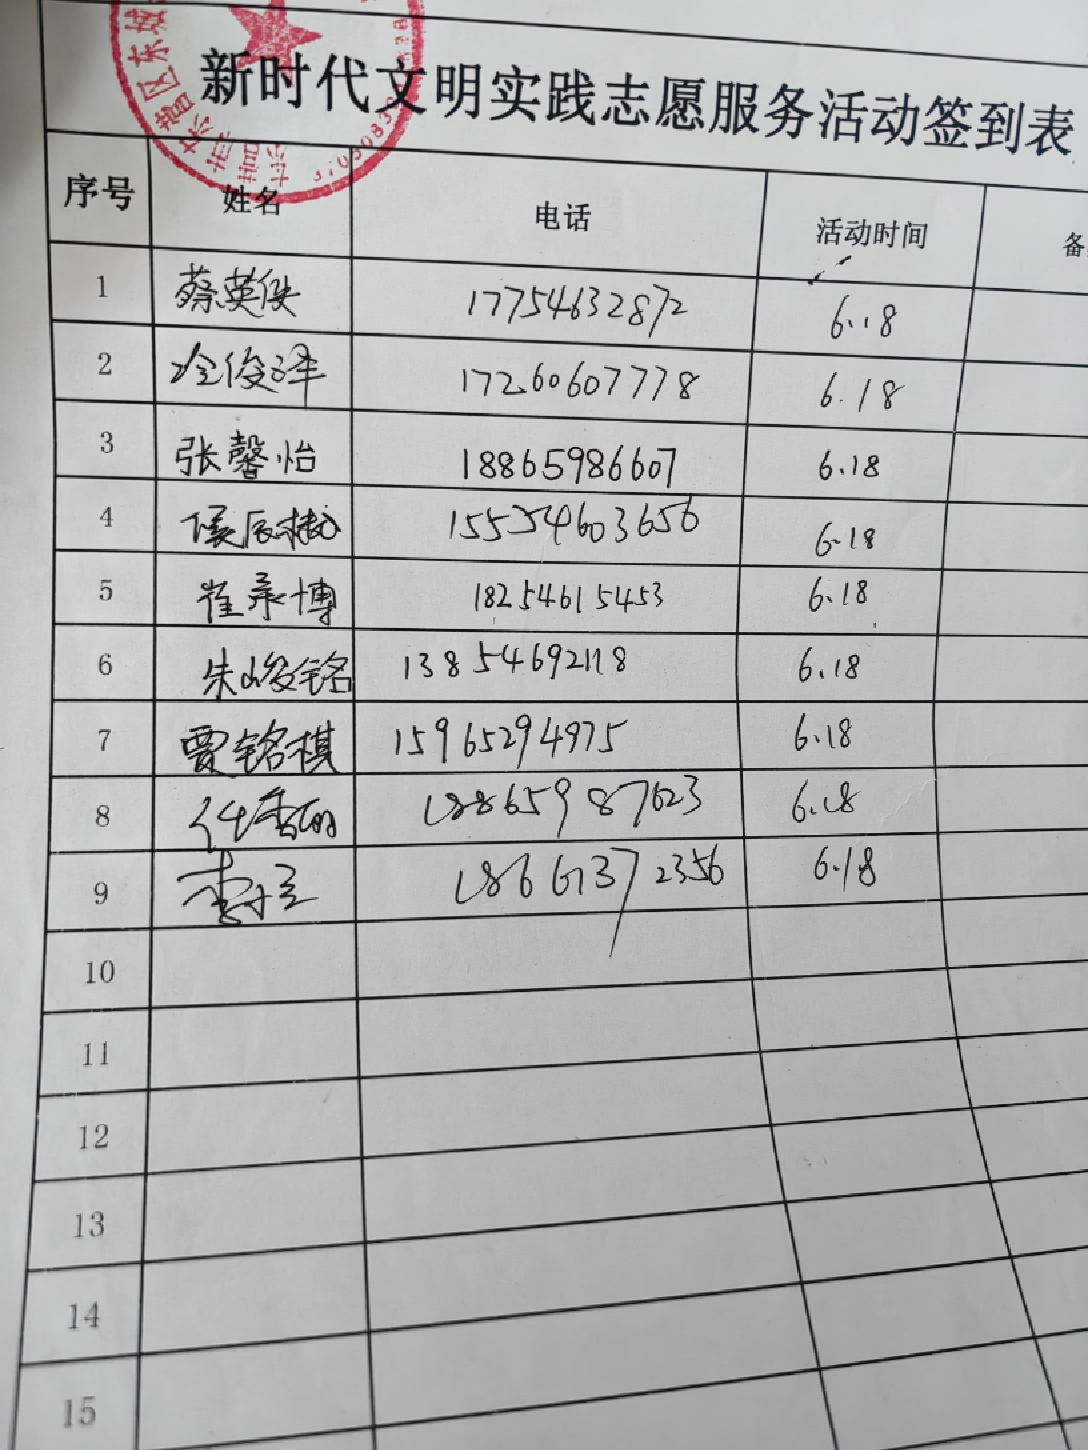 新时代文明实践志愿服务活动签到表
序号 姓名 电话 活动时间 备
1 蔡英俊 17754632872 6.18
2 冷俊泽 17260607778 6.18
3 张馨怡 18865986607 6.18
4 侯辰樾 15554603656 6.18
5 崔承博 18254615453 6.18
6 朱峻铭 13854692118 6.18
7 贾铭棋 15965294975 6.18
8 18865987623 6.18
9 6.18
10
11
12
13
14
15